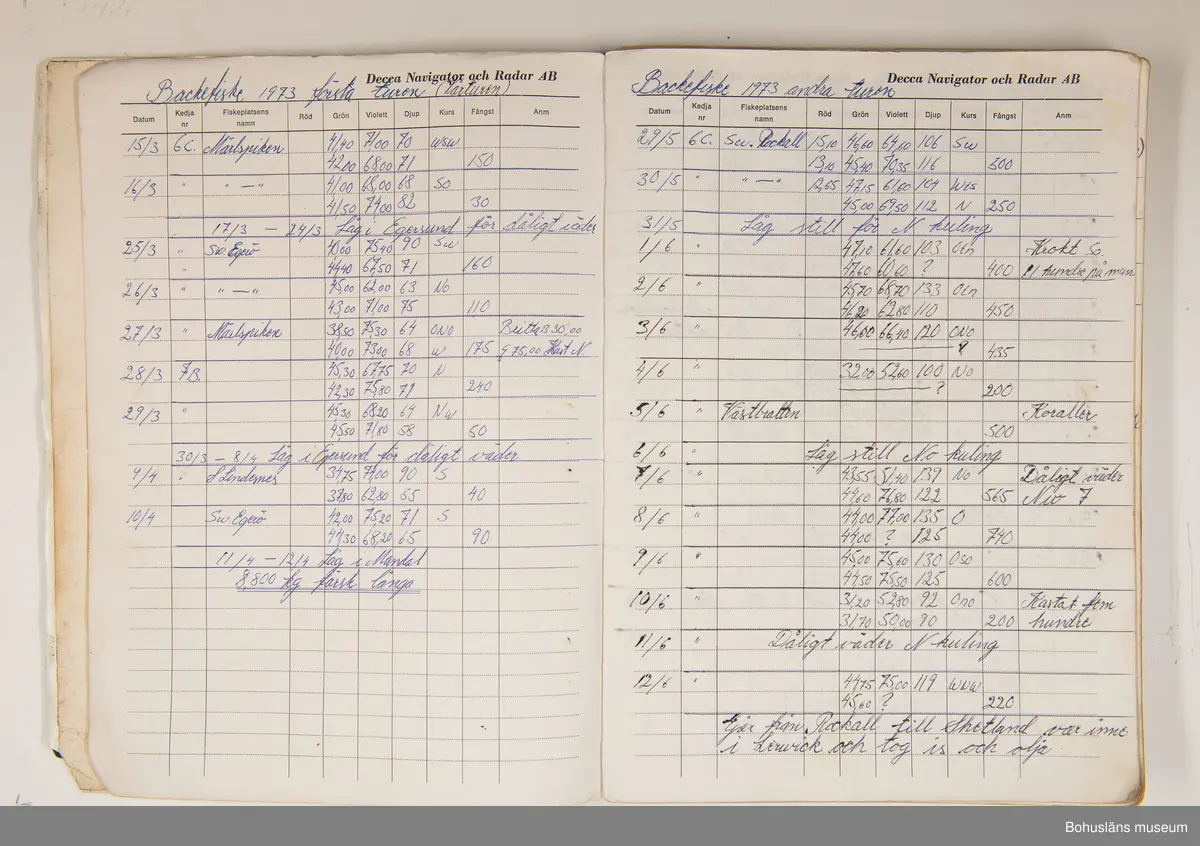 Decca Navigator och Radar AB
Backefiske 1973 första turen (Vårturen)
Datum Kedja nr Fiskeplatsens namn Röd Grön Violett Djup Kurs Fångst Anm
15/3 6C. Märlspiken 41,40 71,00 70 WSW
42,00 68,00 71 150
16/3 " " — " 41,00 68,00 68 SO
41,50 74,00 82 30
17/3 — 24/3 Låg i Egersund för dåligt väder
25/3 " Sw Egerö 40,00 75,40 90 Sw
" 44,40 67,50 71 160
26/3 " " — " 45,00 62,00 63 No
43,00 71,00 75 110
27/3 " Märlspiken 38,50 75,30 64 ONO Britta B 30,00
40,00 73,00 68 W 175 G 75,00 Kast N.
28/3 7B. 45,30 67,75 70 N
42,30 75,80 71 240
29/3 " 45,30 68,20 64 NW
45,50 71,80 58 50
30/3 — 8/4 Låg i Egersund för dåligt väder
9/4 " S Lindesnes 37,75 77,00 90 S
37,80 62,80 65 40
10/4 Sw Egerö 42,00 75,20 71 S
44,30 68,20 65 90
11/4 — 12/4 Låg i Mandal
8,800 kg färsk långa
Decca Navigator och Radar AB
Backefiske 1973 andra turen
Datum Kedja nr Fiskeplatsens namn Röd Grön Violett Djup Kurs Fångst Anm
29/5 6C. Sw. Rockall 15,10 46,60 64,10 106 Sw
13,10 45,40 70,35 116 300
30/5 " " — " 12,65 47,15 61,60 104
45,00 69,50 112 N 250
31/5 Låg still för N kuling
1/6 " 47,10 61,60 103 Oln Krokt So.
47,60 60,60 ? 400 hundre på man
2/6 " 45,70 68,70 133 Oln
46,20 62,80 110 450
3/6 " 46,00 66,40 120 ONO
? 435
4/6 " 32,00 52,60 100 No
? 200
5/6 " Västbratten Koraller
500
6/6 " Låg still No kuling
7/6 " 43,55 81,40 139 No Dåligt väder
44,60 76,80 122 565 NW 7
8/6 " 44,00 77,00 135 O
44,00 ? 125 740
9/6 " 45,00 75,60 130 OSO
44,50 75,50 125 600
10/6 " 31,20 52,80 92 ONO Kastat fem
31,70 50,00 90 200 hundre
11/6 " Dåligt väder N kuling
12/6 " 44,75 75,00 119 WNW
45,60 ? 220
från Rockall till Shetland var inne
i Lerwick och tog is och olja
Bohusläns museum